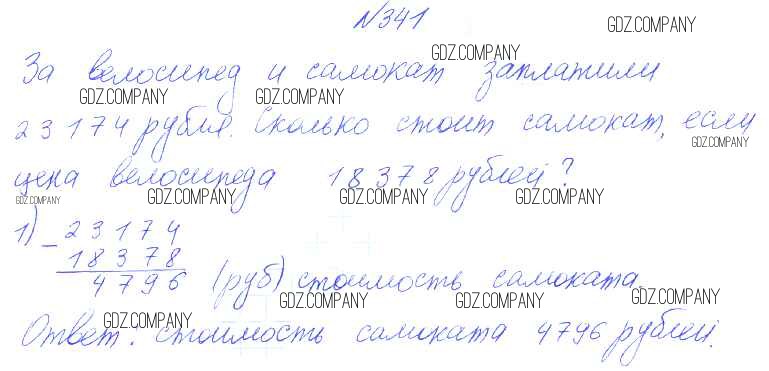 №341
GDZ.COMPANY
За велосипед и самокат заплатили
GDZ.COMPANY
GDZ.COMPANY GDZ.COMPANY
23174 рубля. Сколько стоит самокат, если
GDZ.COMPANY
цена велосипеда 18378 рублей?
GDZ.COMPANY GDZ.COMPANY GDZ.COMPANY GDZ.COMPANY
1) - 23174
18378
4796 (руб) стоимость самоката.
GDZ.COMPANY GDZ.COMPANY GDZ.COMPANY
GDZ.COMPANY
Ответ: стоимость самоката 4796 рублей.